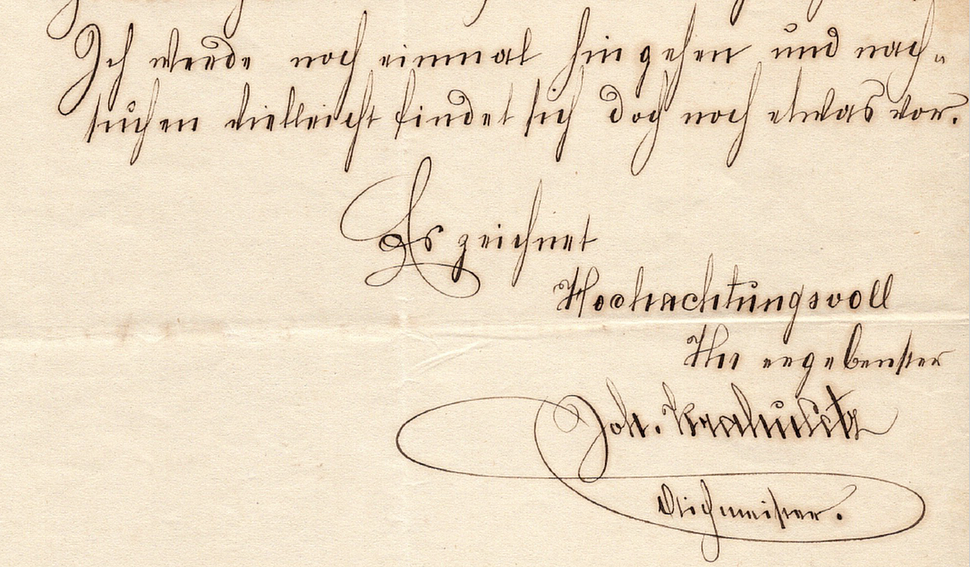 Ich werde noch einmal hingehen und nach-
suchen vielleicht findet sich doch noch etwas vor.
Es zeichnet
Hochachtungsvoll
Ihr ergebenster
Joh. Krahuletz
Aichmeister.